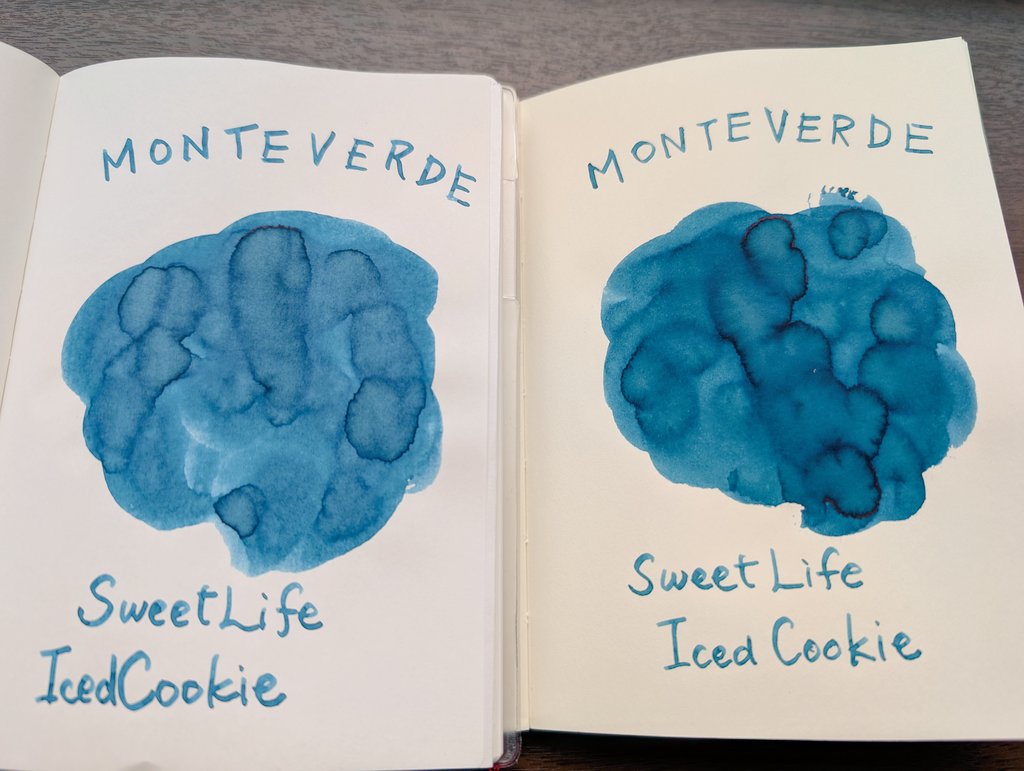 MONTEVERDE
Sweet Life
Iced Cookie
MONTEVERDE
Sweet Life
Iced Cookie